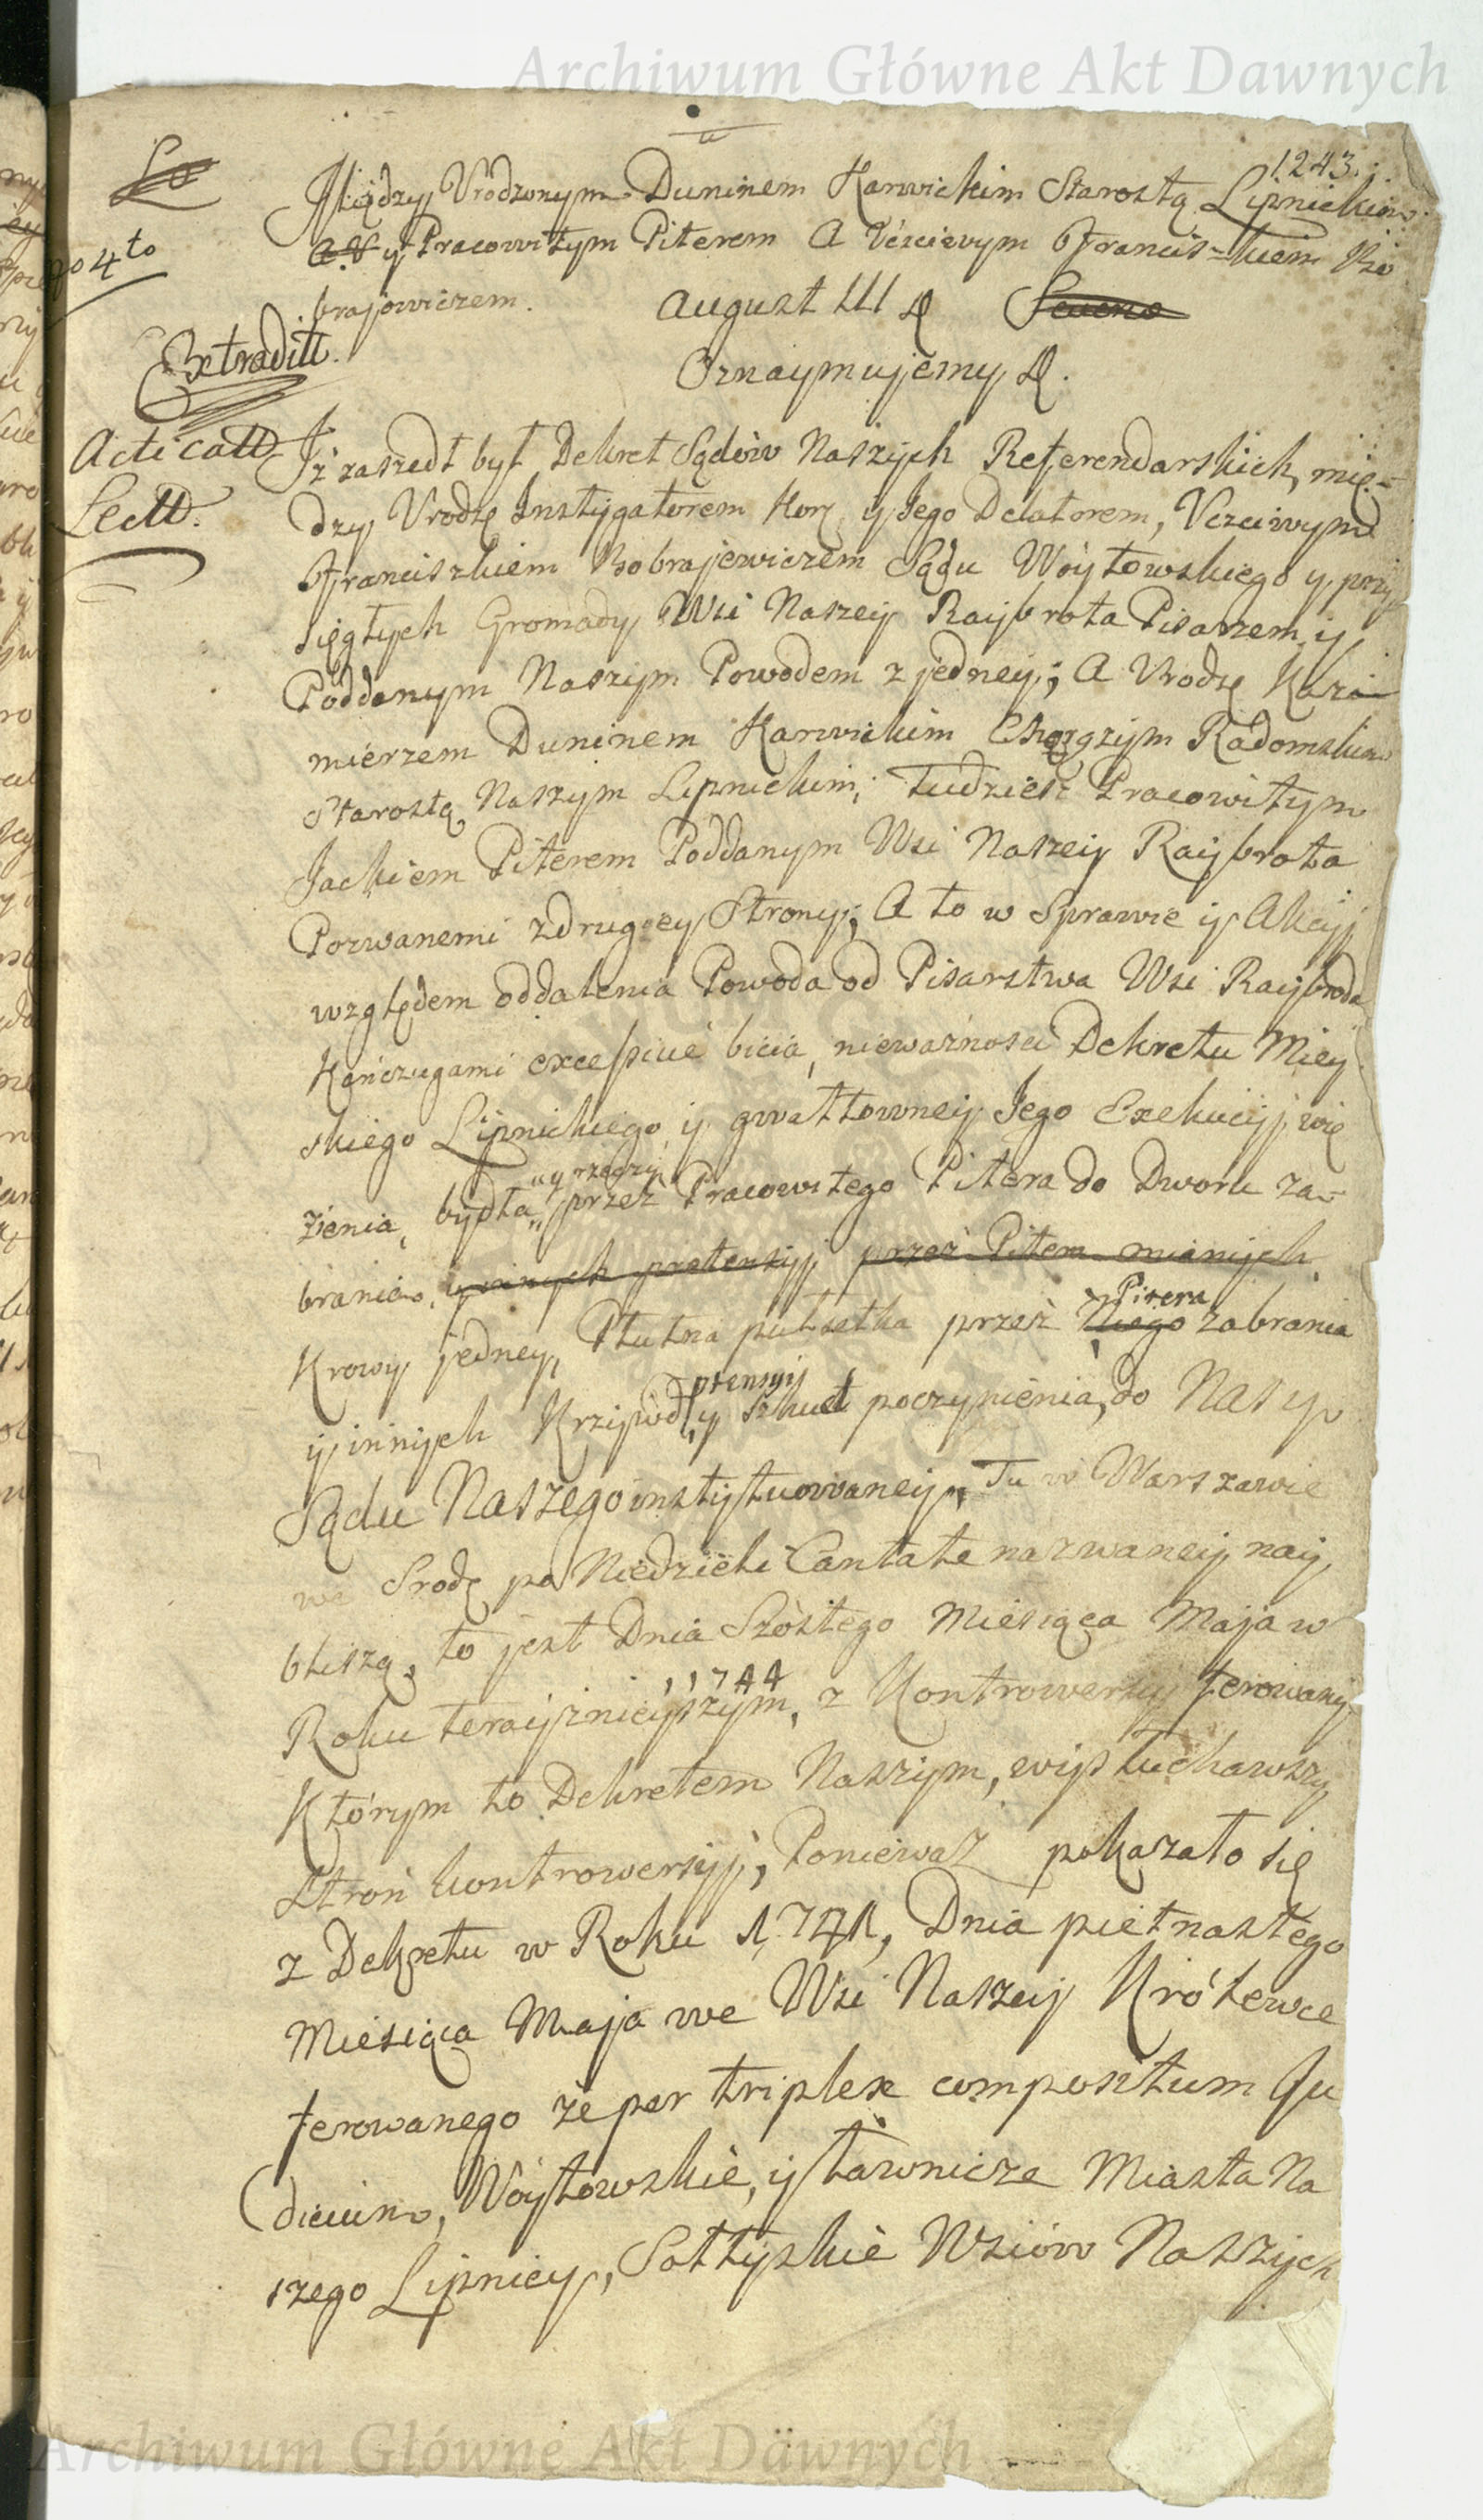 Archiwum Główne Akt Dawnych
1243.
Między Urodzonym Duninem Karwickim Starostą Lipnickim
y Pracowitym Piterem A Uczciwym Franciszkiem Bo
brajewiczem. August III
go 4to
Oznaymujemy
Extraditt.
Acticatt
Iż zaszedł był Dekret Sądów Naszych Referendarskich, mię-
Lectt.
dzy Urodz Instygatorem Kor y Jego Delatorem, Uczciwym
Franciszkiem Bobrajewiczem Sądu Wóytowskiego y przy
sięgłych Gromady Wsi Naszey Raybrota Pisarzem y
Poddanym Naszym Powodem z jedney; A Urodz Kazi
mierzem Duninem Karwickim Chorązym Radomskim
Starostą Naszym Lipnickim; Tudziesz Pracowitym
Jackiem Piterem Poddanym Wsi Naszey Raybrota
Pozwanemi z drugiey Strony; A to w Sprawie y Akcyj
względem oddalenia Powoda od Pisarstwa Wsi Raybroda
Kańczugami excessive bicia, nieważnosci Dekretu Miey
skiego Lipnickiego y gwałtowney Jego Exekucyj, wię
zienia, bydła y rzeczy przez Pracowitego Pitera do Dworu za-
brania, y innych pretensyj przez Pitera mianych
Krowy jedney, Płutna pułsetka przez Niego Pitera zabrania
y innych Krzywd ptensyij y Szkud poczynienia, do Nas y
Sądu Naszego instytuowaney, Tu w Warszawie
we Srodę po Niedzieli Cantate nazwaney nay
bliszą, to jest Dnia Szóstego Miesiąca Maja w
Roku teraznieyszym, 1744 z Kontrowersyj ferowany
Którym to Dekretem Naszym, wysłuchawszy
Stron kontrowersyj, Ponieważ pokazało się
z Dekretu w Roku 1741, Dnia piętnastego
Miesiąca Maja we Wsi Naszey Królewce
ferowanego że per triplex compositum Ju
dicium, Wóytowskie, y Ławnicze Miasta Na
szego Lipnicy, Sołtyskie Wsiów Naszych
Archiwum Główne Akt Dawnych